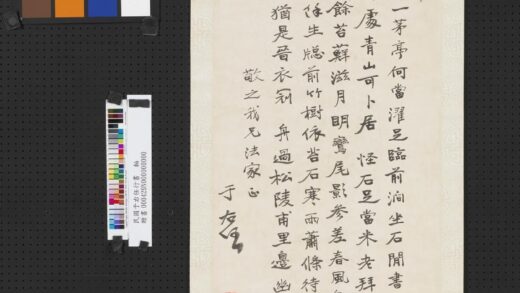 一茅亭何當濯足臨前澗坐石閒書
處青山可卜居 怪石足當米老拜
餘苔蘚滋月明鸞尾影參差春風
生牕前竹樹依苔石寒雨蕭條待
猶是晉衣冠 舟過松陵甫里邊幽
敬之我兄法家正
于右任
民國于右任行書 軸
000428N000000000